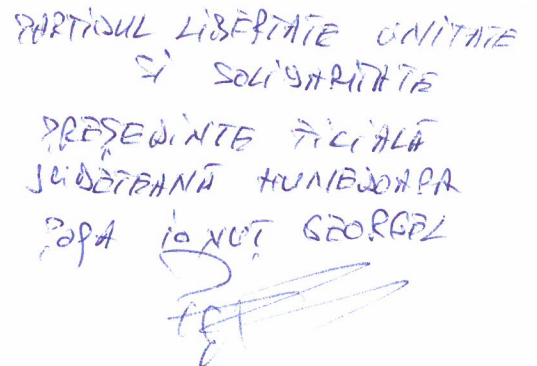 PARTIDUL LIBERTATE UNITATE
SI SOLIDARITATE
PREȘEDINTE FILIALĂ
JUDEȚEANĂ HUNEDOARA
POPA IONUȚ GEORGEL